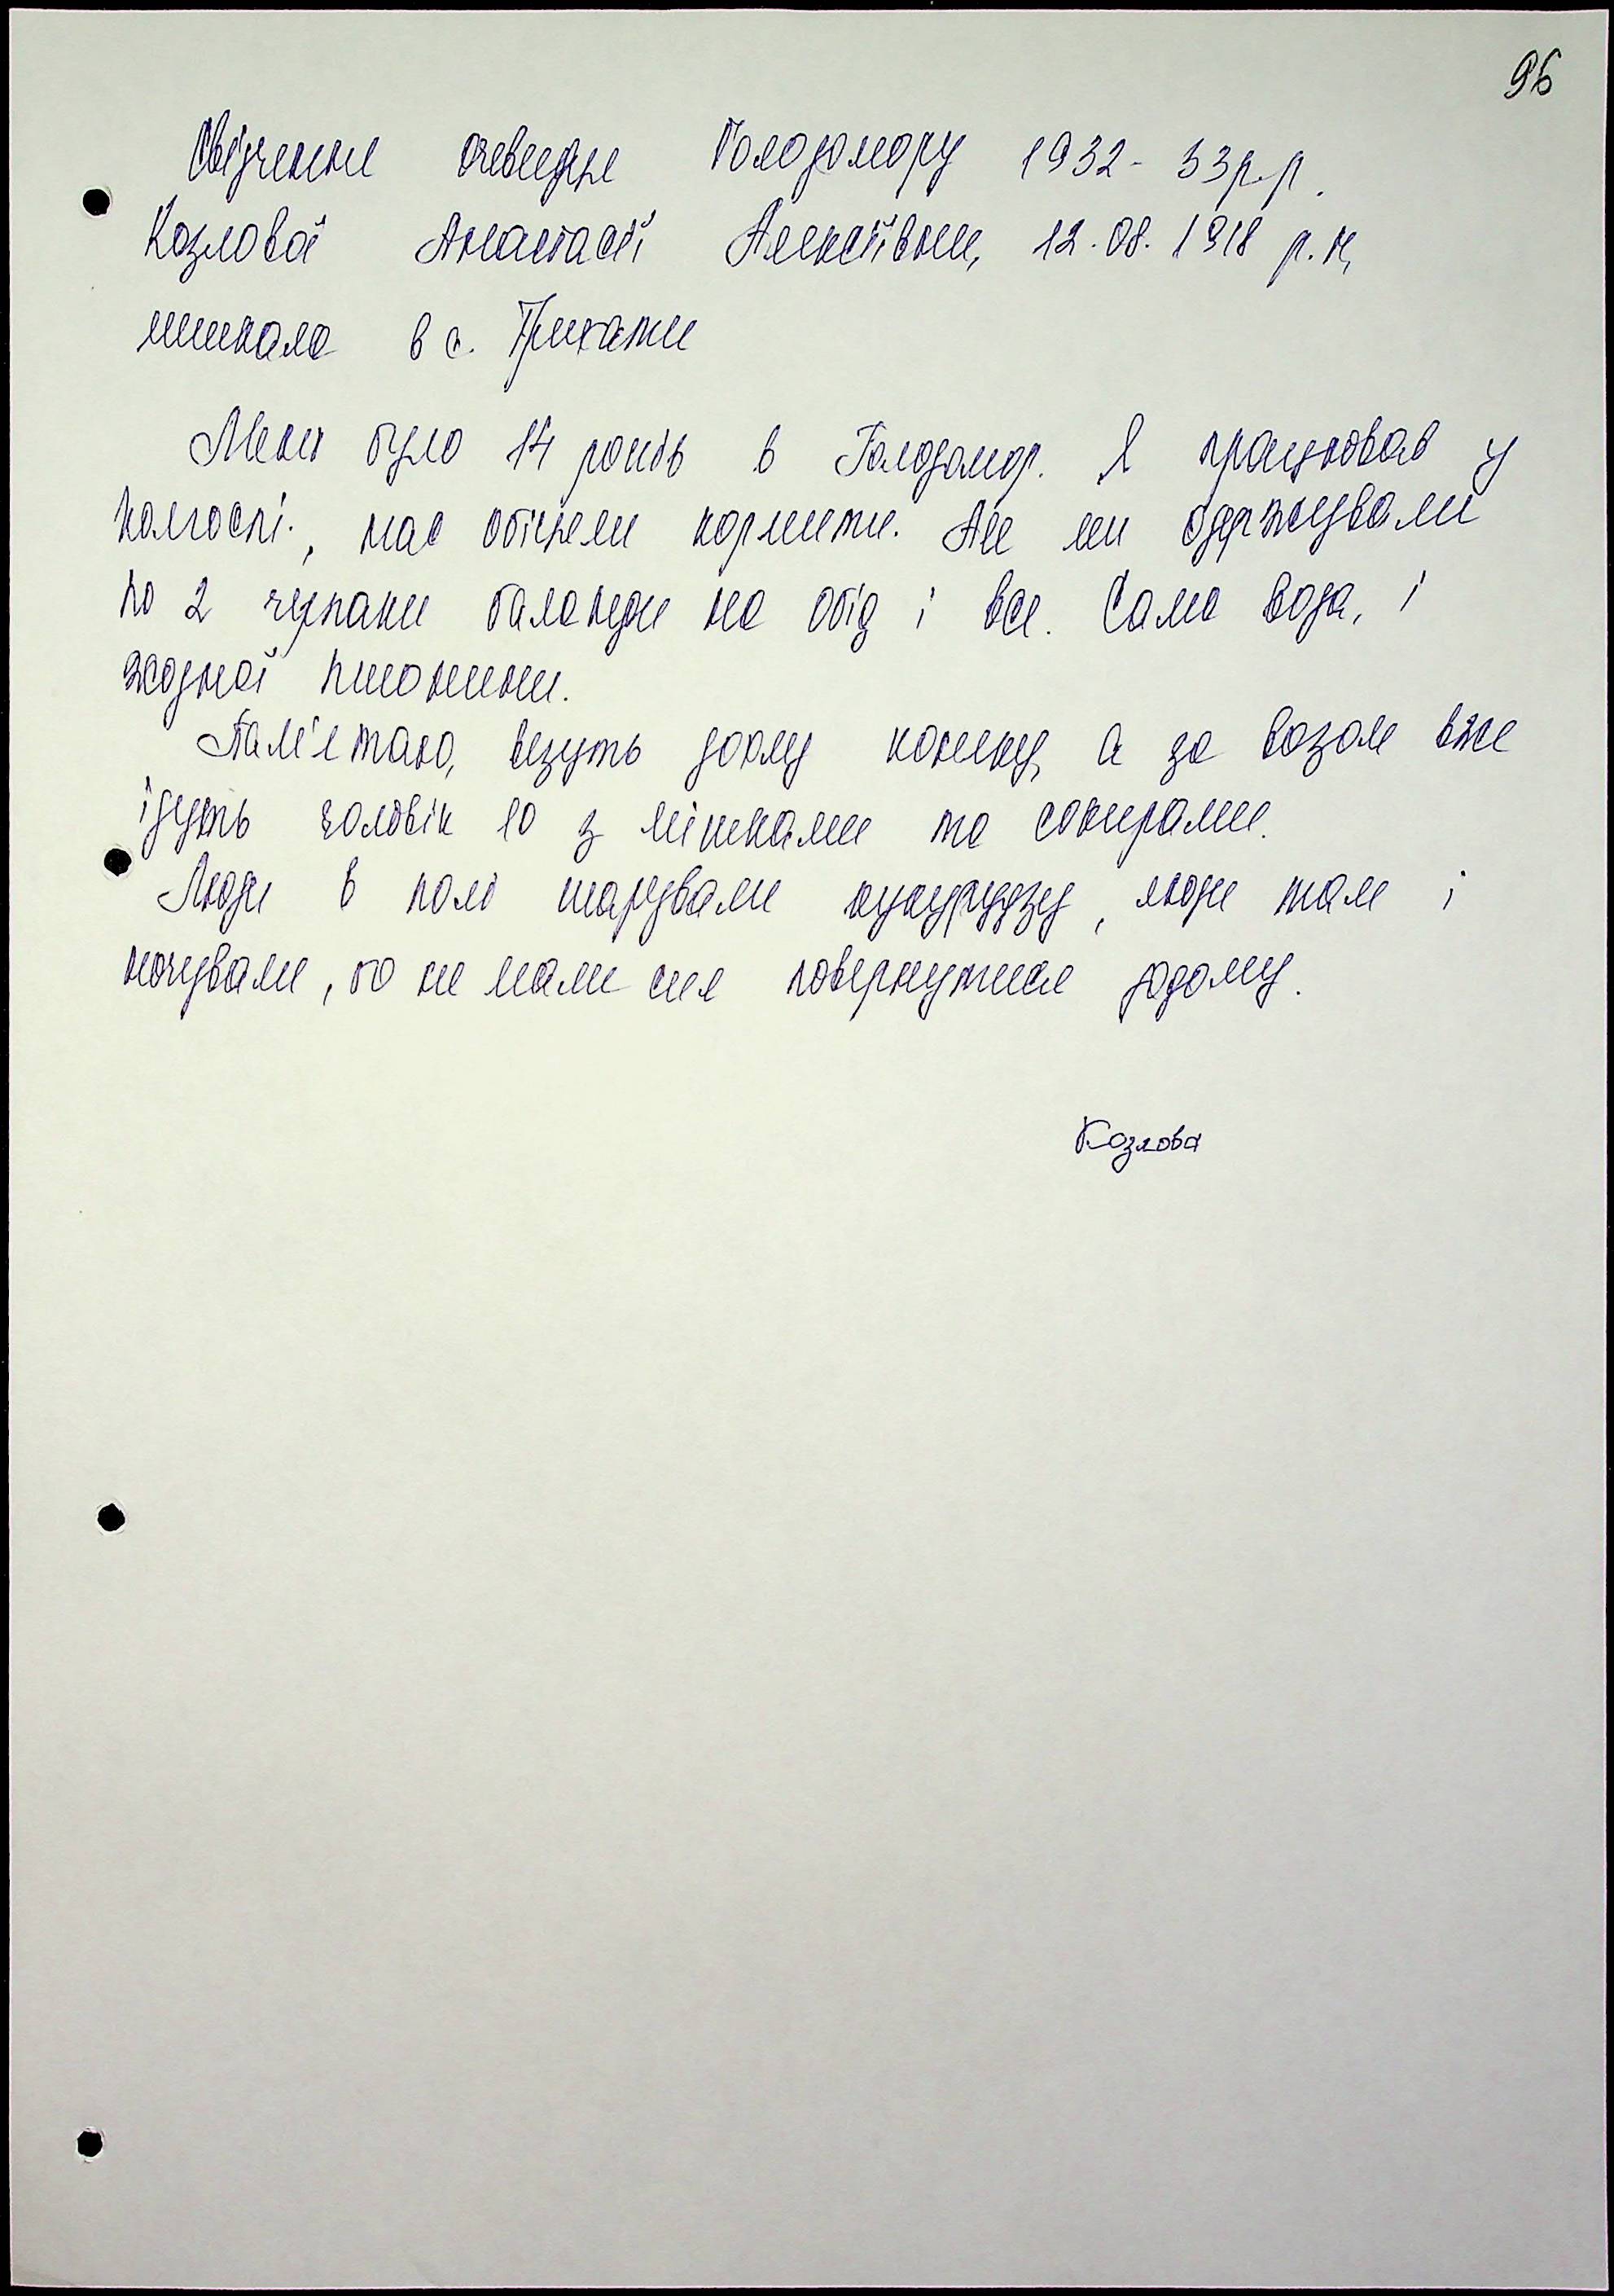 96
Свідчення очевидця Голодомору 1932-33р.р.
Козлової Анастасії Алексіївни, 12.08.1918 р.н,
мешкала в с. Трихати
Мені було 14 років в Голодомор. Я працювала у
колгоспі, нас обіцяли кормити. Але ми одержували
по 2 черпаки баланди на обід і все. Сама вода, і
жодної пшонини.
Пам'ятаю, везуть дохлу коняку, а за возом вже
ідуть чоловік 10 з мішками та сокирами.
Люди в полі шарували кукурудзу, люди там і
ночували, бо не мали сил повернутися додому.
Козлова